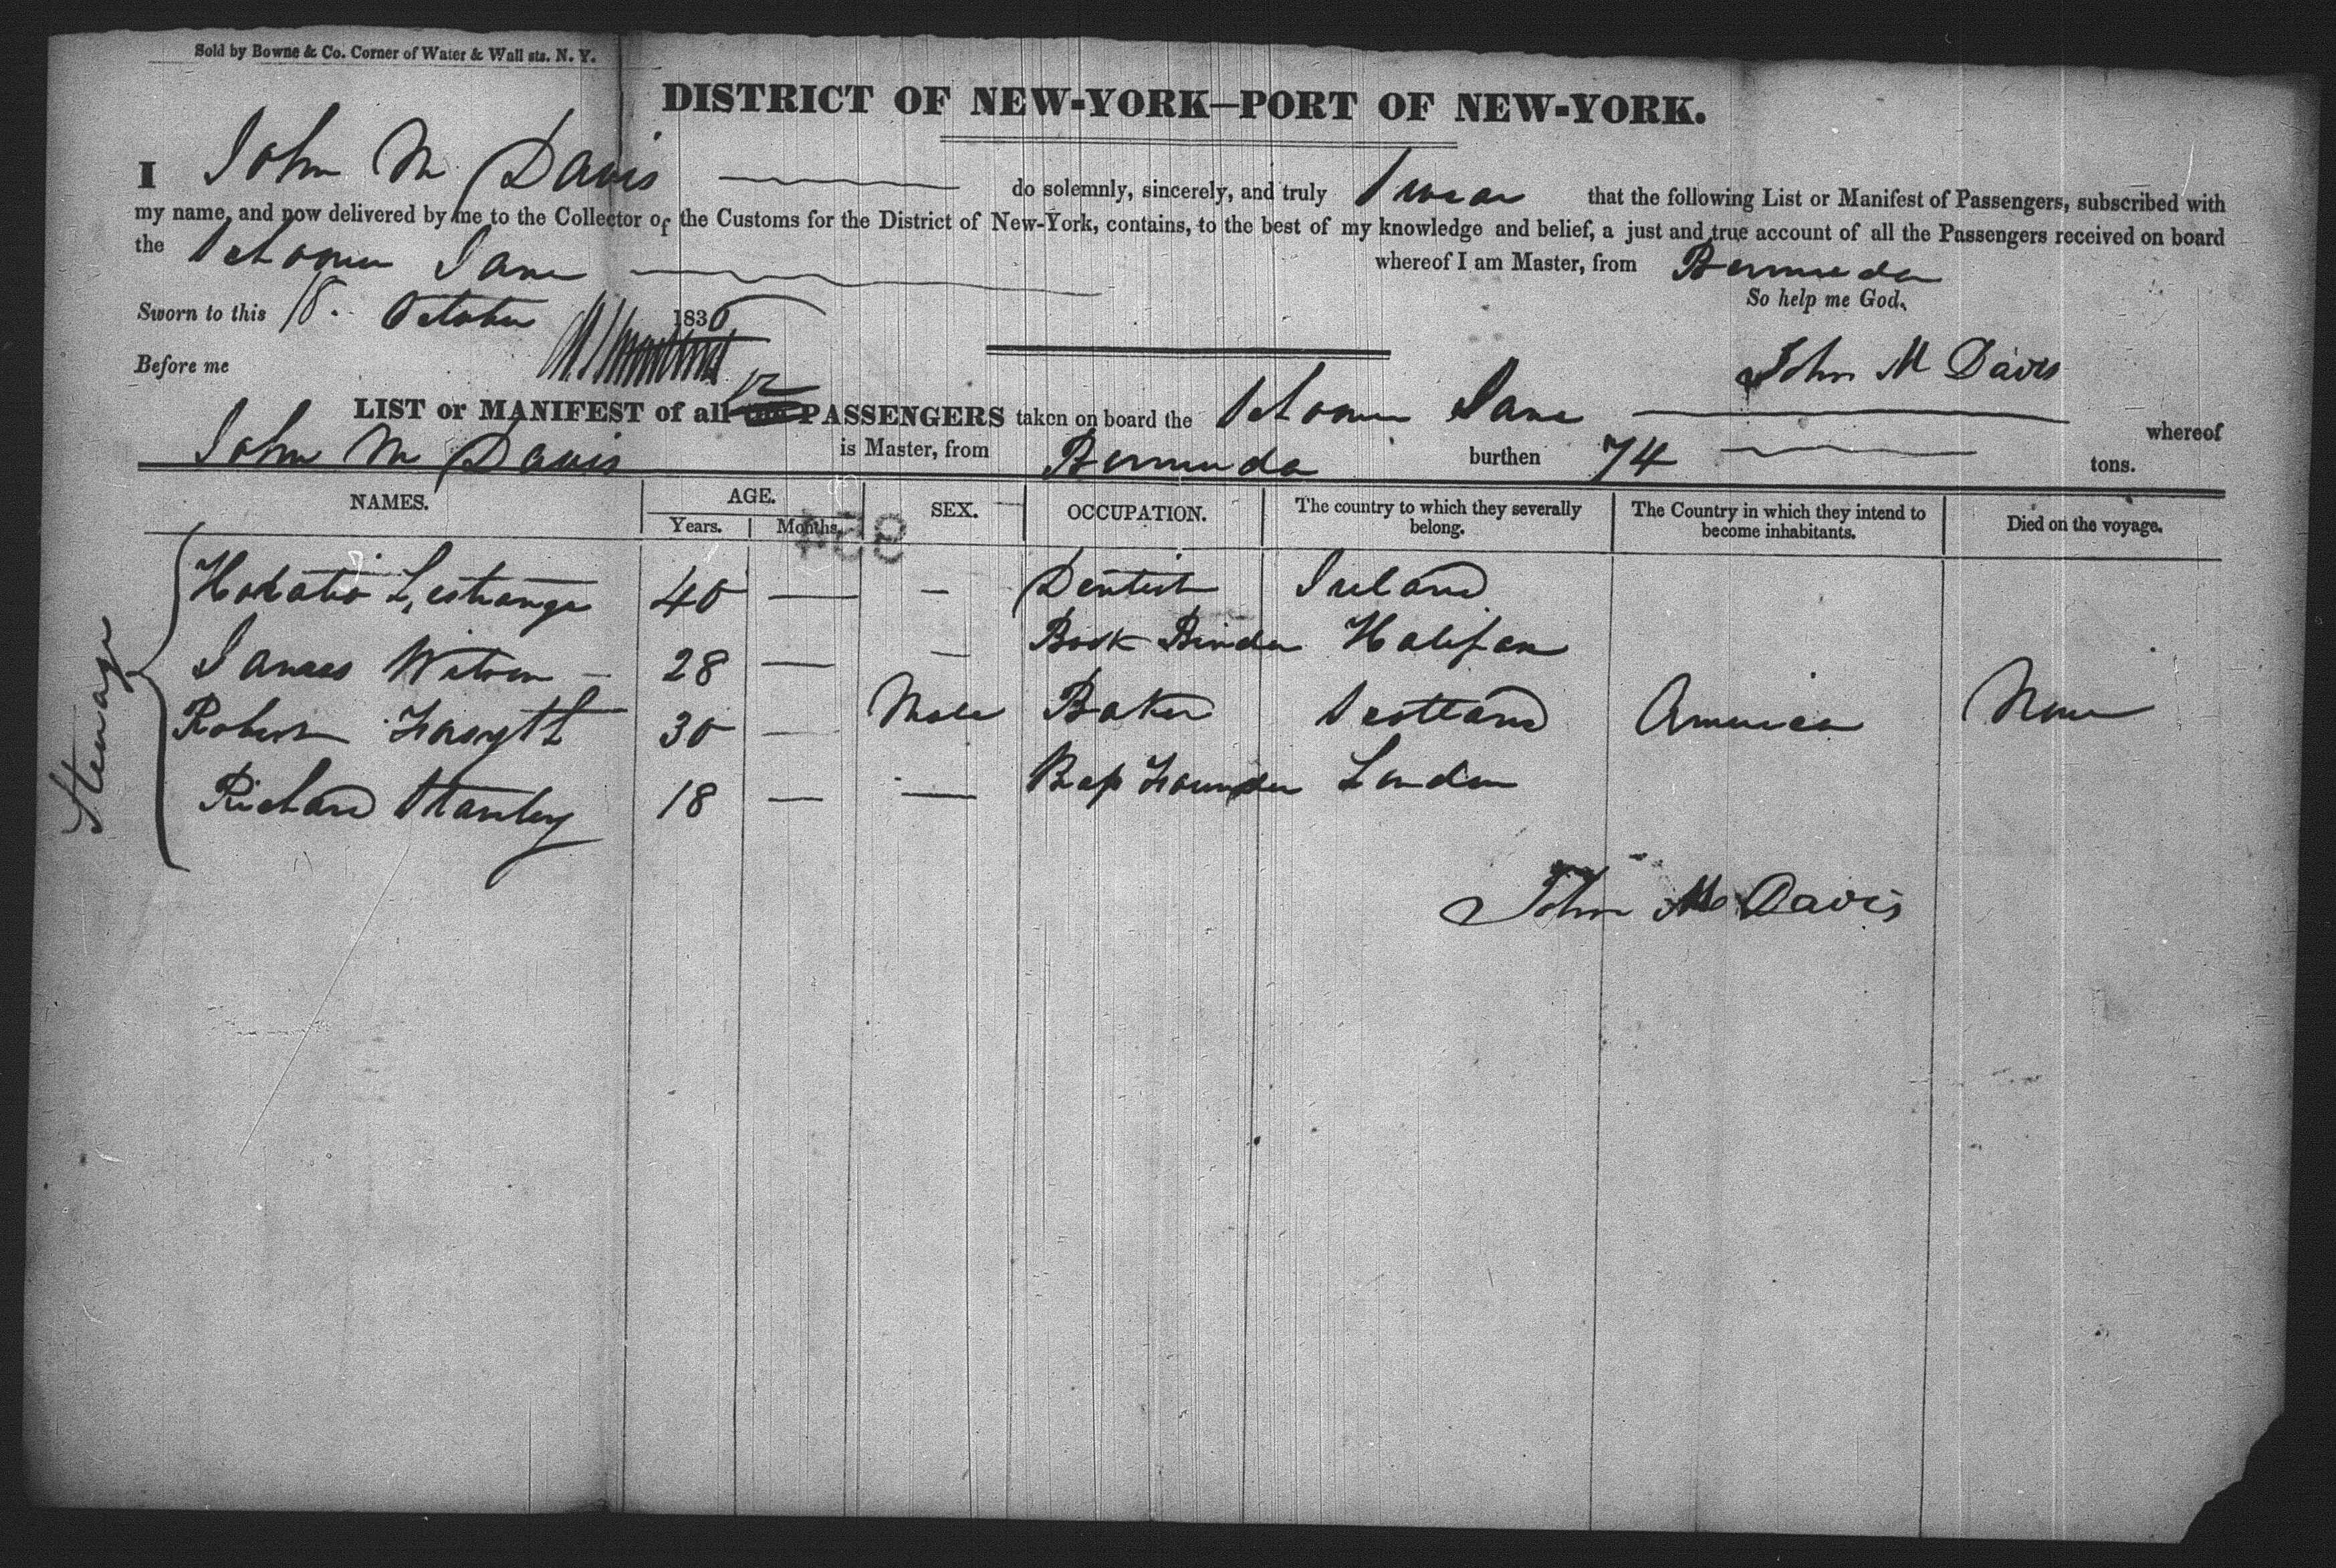 Sold by Bowne & Co. Corner of Water & Wall sts. N. Y.
DISTRICT OF NEW-YORK—PORT OF NEW-YORK.
I John M Davis do solemnly, sincerely, and truly Swear that the following List or Manifest of Passengers, subscribed with
my name, and now delivered by me to the Collector of the Customs for the District of New-York, contains, to the best of my knowledge and belief, a just and true account of all the Passengers received on board
the Schooner Jane whereof I am Master, from Bermuda
So help me God.
Sworn to this 18. October 1836
Before me
John M Davis
LIST or MANIFEST of all PASSENGERS taken on board the Schooner Jane whereof
John M Davis is Master, from Bermuda burthen 74 tons.
NAMES. AGE. SEX. OCCUPATION. The country to which they severally belong. The Country in which they intend to become inhabitants. Died on the voyage.
Years. Months.
Steerage
Horatio Lestrange 40 — — Dentist Ireland
James Wilson — 28 — — Book Binder Halifax
Robert Forsyth 30 — Male Baker Scotland America None
Richard Stanley 18 — — Founder London
John M Davis